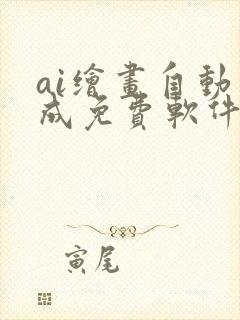 ai繪畫自動
成免費軟件
寅尾